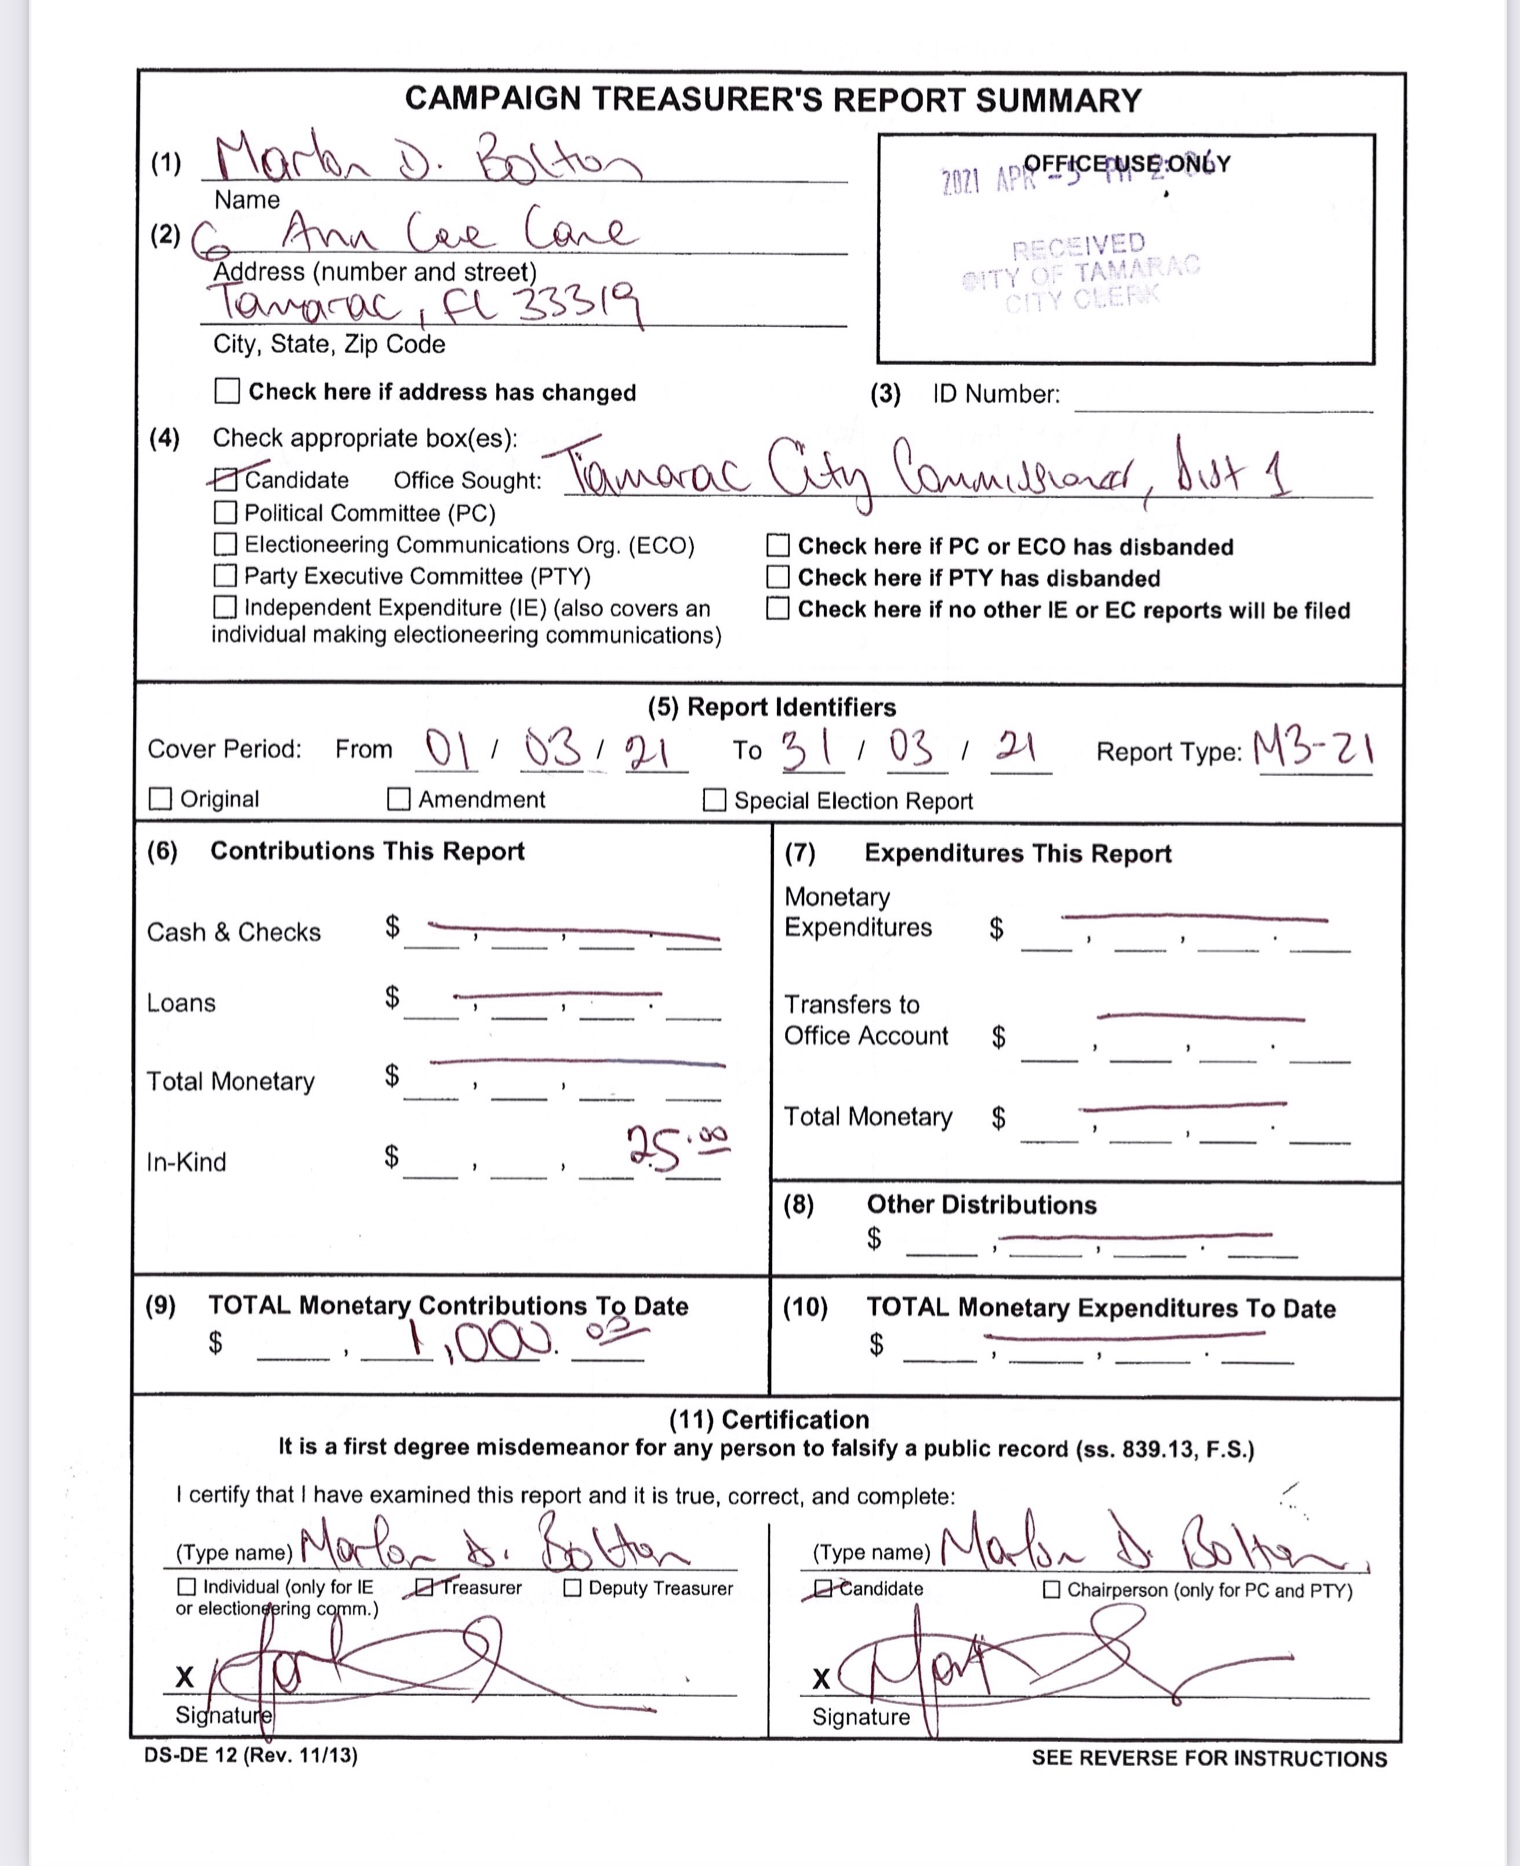 CAMPAIGN TREASURER'S REPORT SUMMARY
(1) Marlon D. Bolton
Name
OFFICE USE ONLY
2021 APR -5 PM 2:06
RECEIVED
CITY OF TAMARAC
CITY CLERK
(2) 6 Ann Lee Lane
Address (number and street)
Tamarac, FL 33319
City, State, Zip Code
Check here if address has changed
(3) ID Number:
(4) Check appropriate box(es):
Candidate Office Sought: Tamarac City Commissioner, Dist 1
Political Committee (PC)
Electioneering Communications Org. (ECO)
Party Executive Committee (PTY)
Independent Expenditure (IE) (also covers an
individual making electioneering communications)
Check here if PC or ECO has disbanded
Check here if PTY has disbanded
Check here if no other IE or EC reports will be filed
(5) Report Identifiers
Cover Period: From 01 / 03 / 21 To 31 / 03 / 21 Report Type: M3-21
Original Amendment Special Election Report
(6) Contributions This Report
Cash & Checks $
Loans $
Total Monetary $
In-Kind $ 25.00
(7) Expenditures This Report
Monetary
Expenditures $
Transfers to
Office Account $
Total Monetary $
(8) Other Distributions
$
(9) TOTAL Monetary Contributions To Date
$ 1,000.00
(10) TOTAL Monetary Expenditures To Date
$
(11) Certification
It is a first degree misdemeanor for any person to falsify a public record (ss. 839.13, F.S.)
I certify that I have examined this report and it is true, correct, and complete:
(Type name) Marlon D. Bolton
Individual (only for IE Treasurer Deputy Treasurer
or electioneering comm.)
X
Signature
(Type name) Marlon D. Bolton
Candidate Chairperson (only for PC and PTY)
X
Signature
DS-DE 12 (Rev. 11/13)
SEE REVERSE FOR INSTRUCTIONS